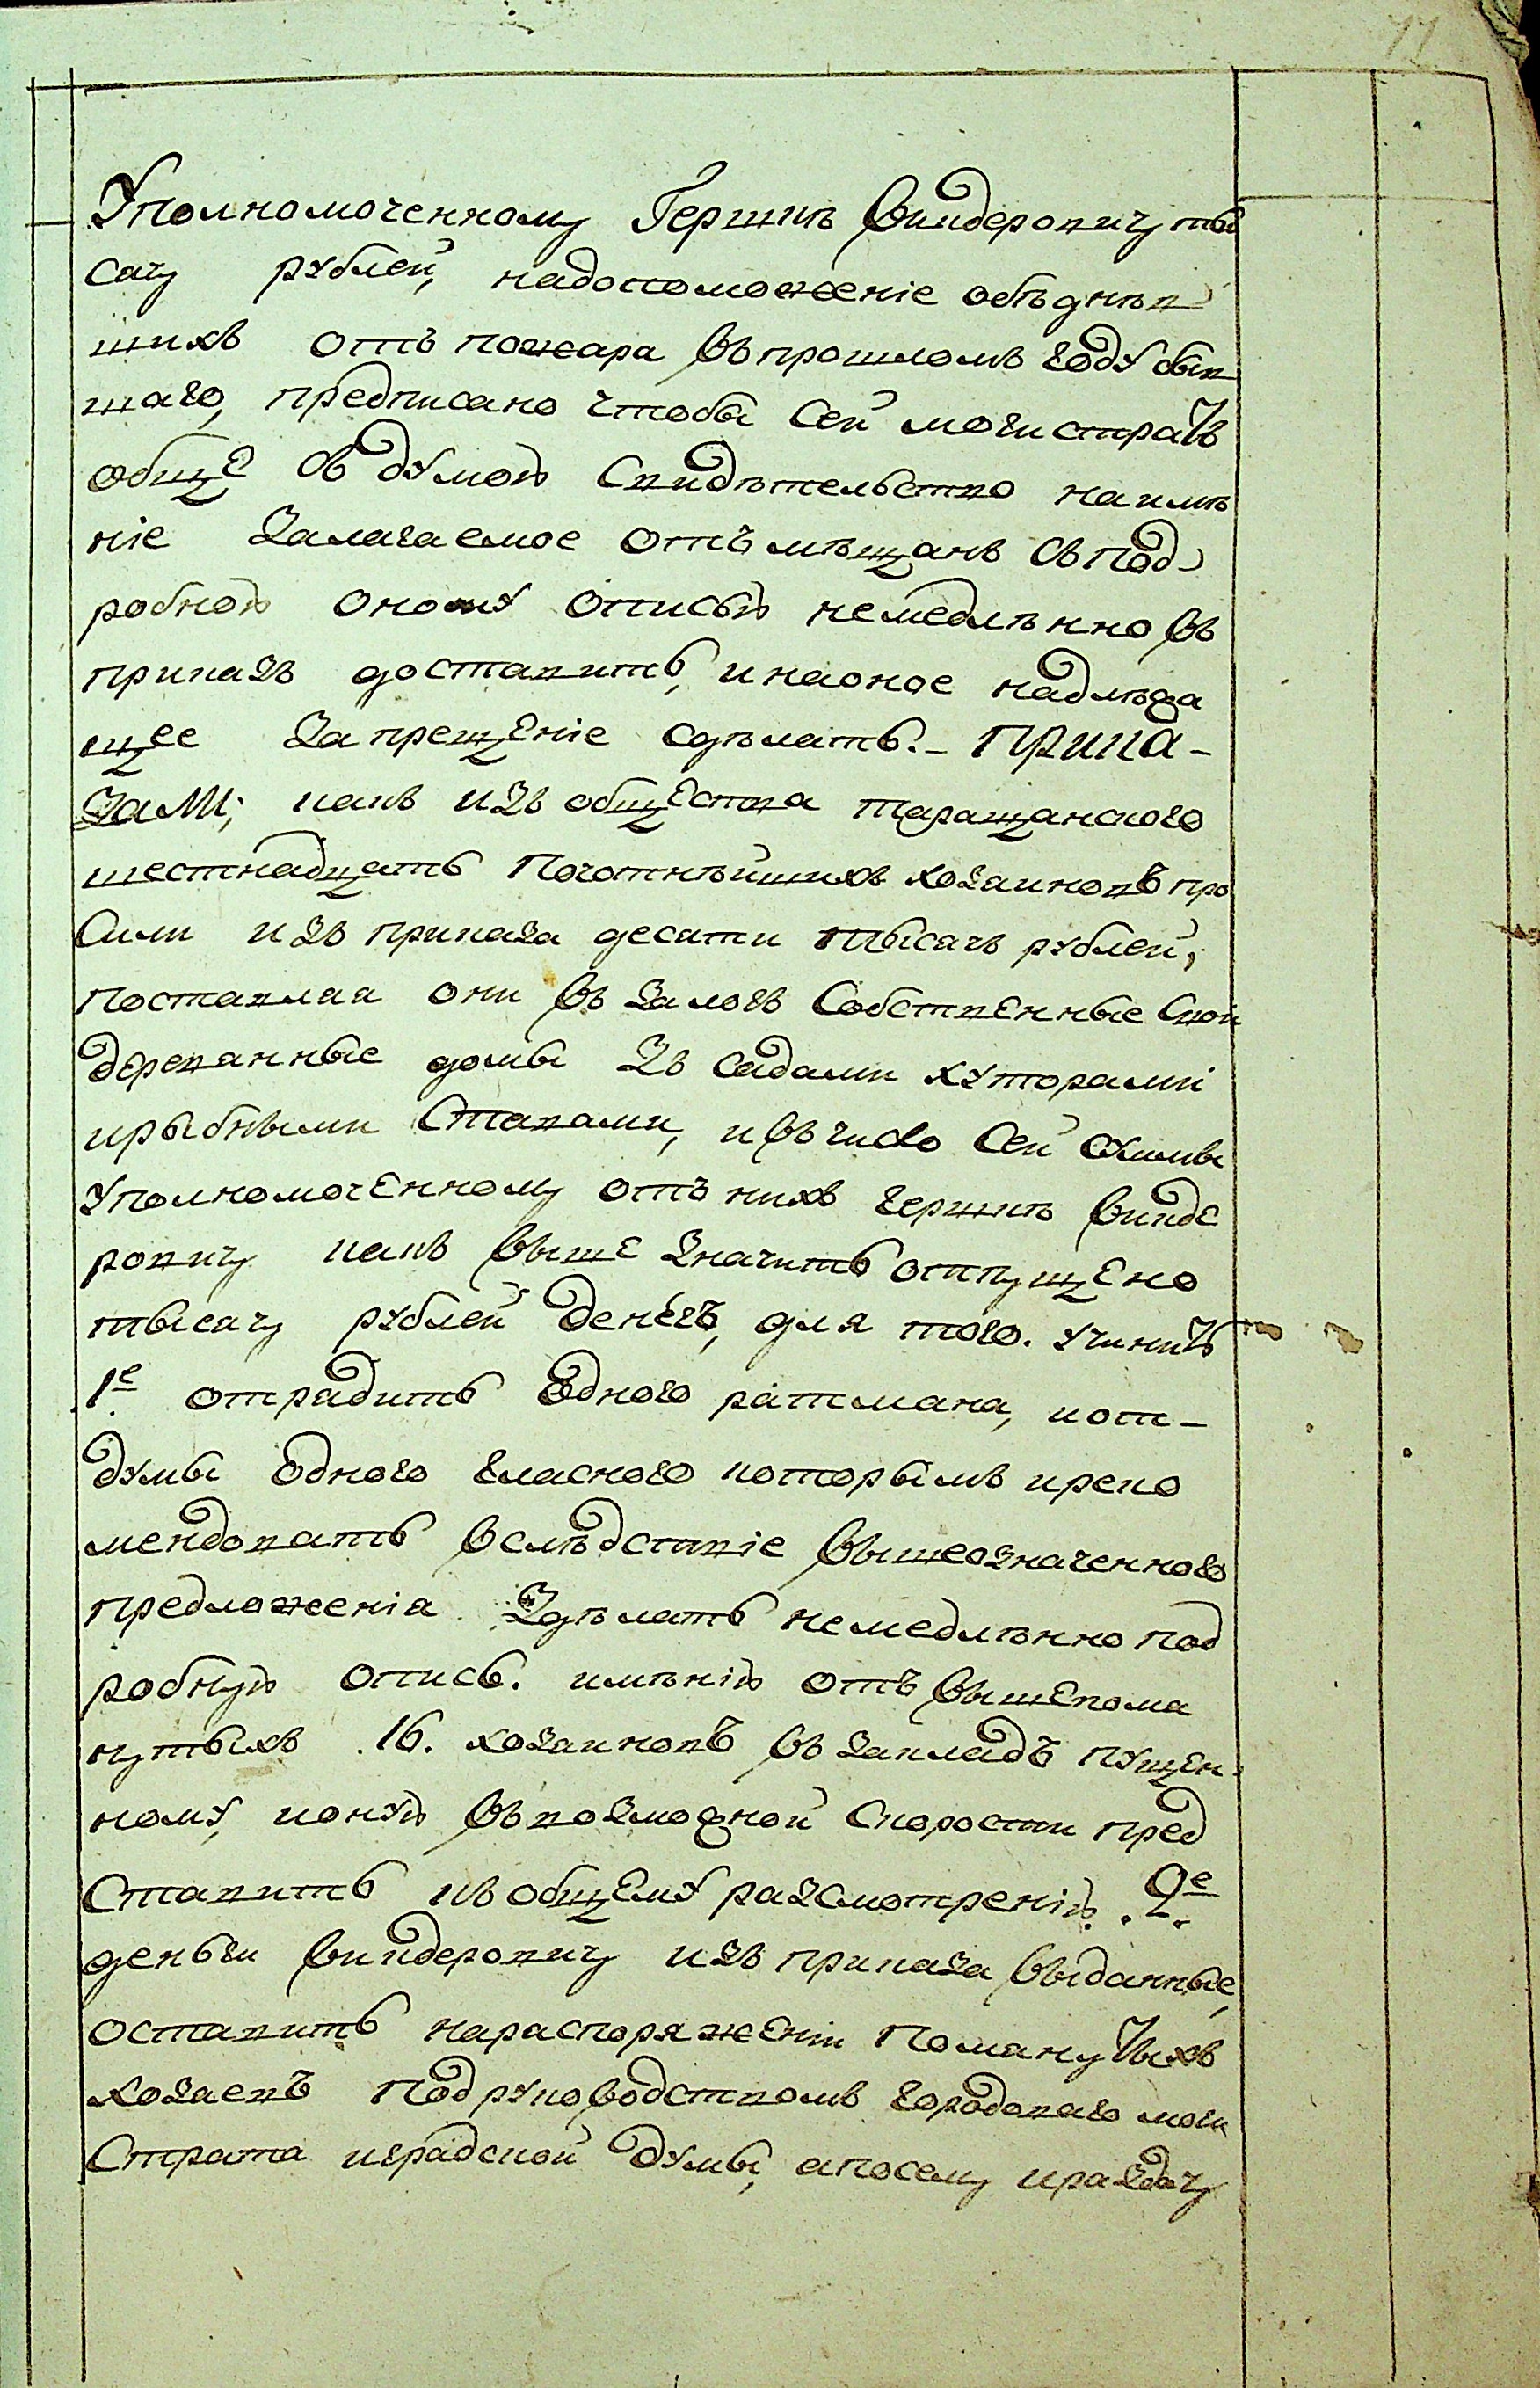 77
Уполномоченному Гершкѣ Виндеровичу ты
сачу рублей, надопоможеніе обѣднѣв
шихъ отъ пожара въ прошломъ году быв
шаго, предписано чтобы сей магистратъ
обще съ думою свидѣтельство наимѣ
ніе залагаемое отъ мѣщанъ съ под-
робной оному описью немедлѣнно въ
приказъ доставить, и наоное надлѣжа
щее запрещеніе сдѣлать. – Прика-
зали; какъ изъ общества таращанского
шестнадцать почотнѣйшихъ хозаиновъ про
сили изъ приказа десати тысачъ рублей,
поставляя они въ залогъ собственные свои
деревянные домы зъ садами хуторами
ирыбными ставами, и въ число сей суммы
уполномоченному отъ нихъ Гершкѣ Винде
ровичу какъ выше значитъ отпущено
тысачу рублей денегъ, для того. учинить
1е отрадить одного ратмана, и от-
думы одного гласного которымъ иреко
мендовать вслѣдствіе вышеозначенного
предложеніа. Здѣлать немедлѣнно под
робную опись. имѣнію отъ вышепома
нутыхъ .16. хозаиновъ въ закладъ пущен-
ному, и оную въ возможной скорости пред
ставить къ общему разсмотренію. 2е
деньги Виндеровичу изъ приказа выданные,
оставить нараспоряженіи поманутыхъ
хозаевъ под руководствомъ городоваго маги
страта иградской думы, апосему ираздачу